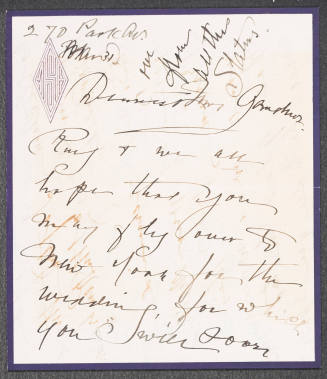 270 Park Av.
one from
all the
States.
Dearest Mrs Gardner
& we all
hope that you
may fly over to
New York for the
wedding, for which
you will soon